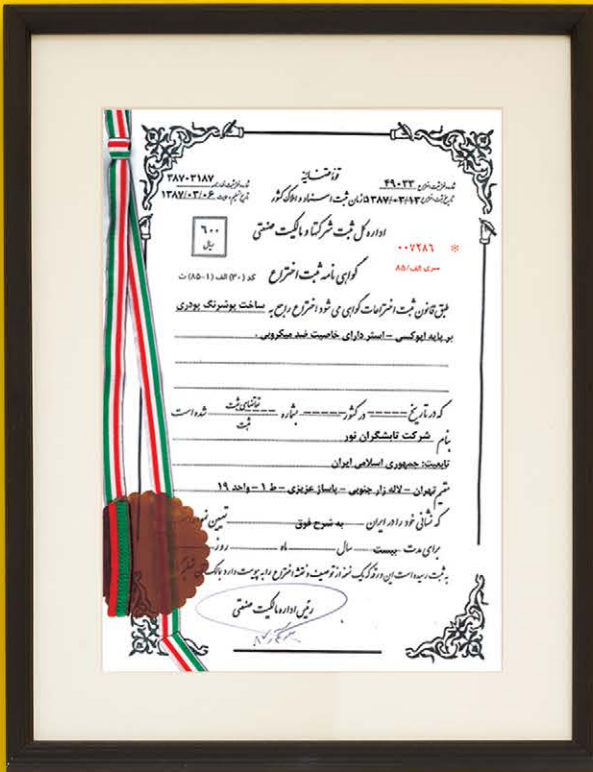 قوه قضائیه
شماره ثبت اختراع: ۴۹۰۳۳
۳۸۷۰۳۱۸۷
تاریخ ثبت اختراع: ۱۳۸۷/۰۳/۱۳ سازمان ثبت اسناد و املاک کشور
۱۳۸۷/۰۳/۰۶
اداره کل ثبت شرکتها و مالکیت صنعتی
۶۰۰
ریال
* ۰۰۷۲۸۶
سری الف/۸۵
گواهی نامه ثبت اختراع
کد (۳۰) الف (۱-۸۵) ت
طبق قانون ثبت اختراعات گواهی می شود اختراع راجع به ساخت پوشرنگ پودری
بر پایه اپوکسی – استر دارای خاصیت ضد میکروبی .
که در تاریخ ----- در کشور ----- بشماره تقاضای ثبت شده است
ثبت
بنام شرکت تابشگران نور
تابعیت: جمهوری اسلامی ایران
مقیم تهران – لاله زار جنوبی – پاساژ عزیزی – ط ۱ – واحد ۱۹
که نشانی خود را در ایران به شرح فوق تعیین نموده
برای مدت بیست سال ماه روز
به ثبت رسیده است این ورقه که یک نسخه از توصیف و نقشه اختراع را به پیوست دارد
رئیس اداره مالکیت صنعتی